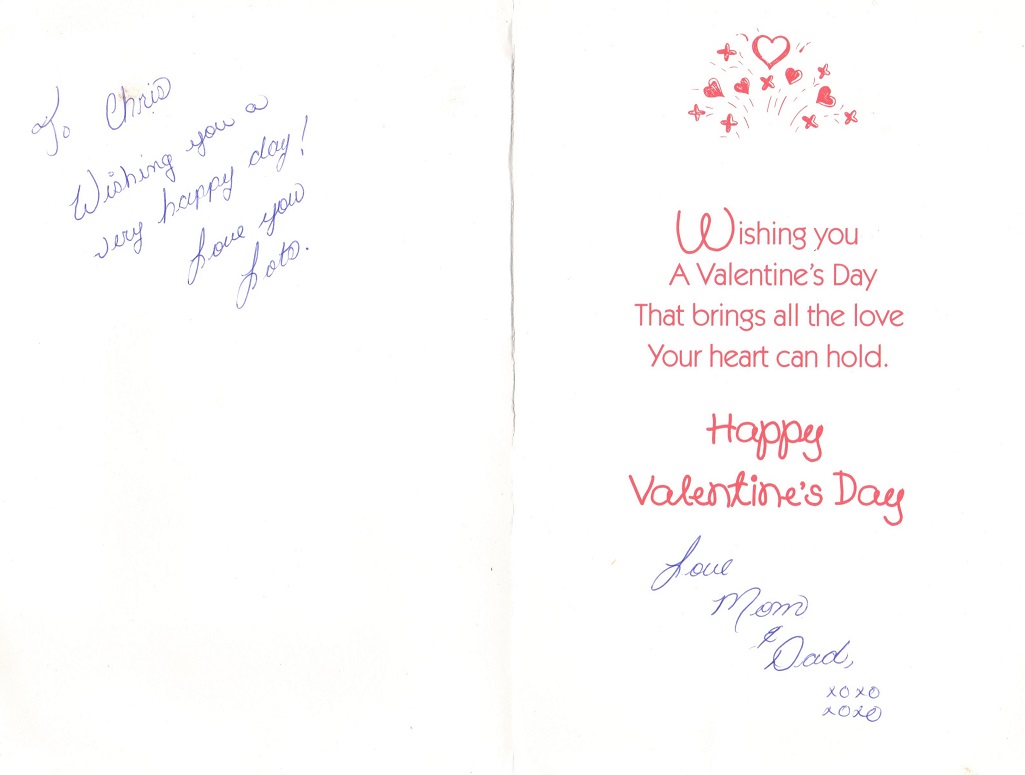 To Chris
Wishing you a
very happy day!
Love you
Lots.
Wishing you
A Valentine's Day
That brings all the love
Your heart can hold.
Happy
Valentine's Day
Love
Mom
&
Dad,
xoxo
xoxo